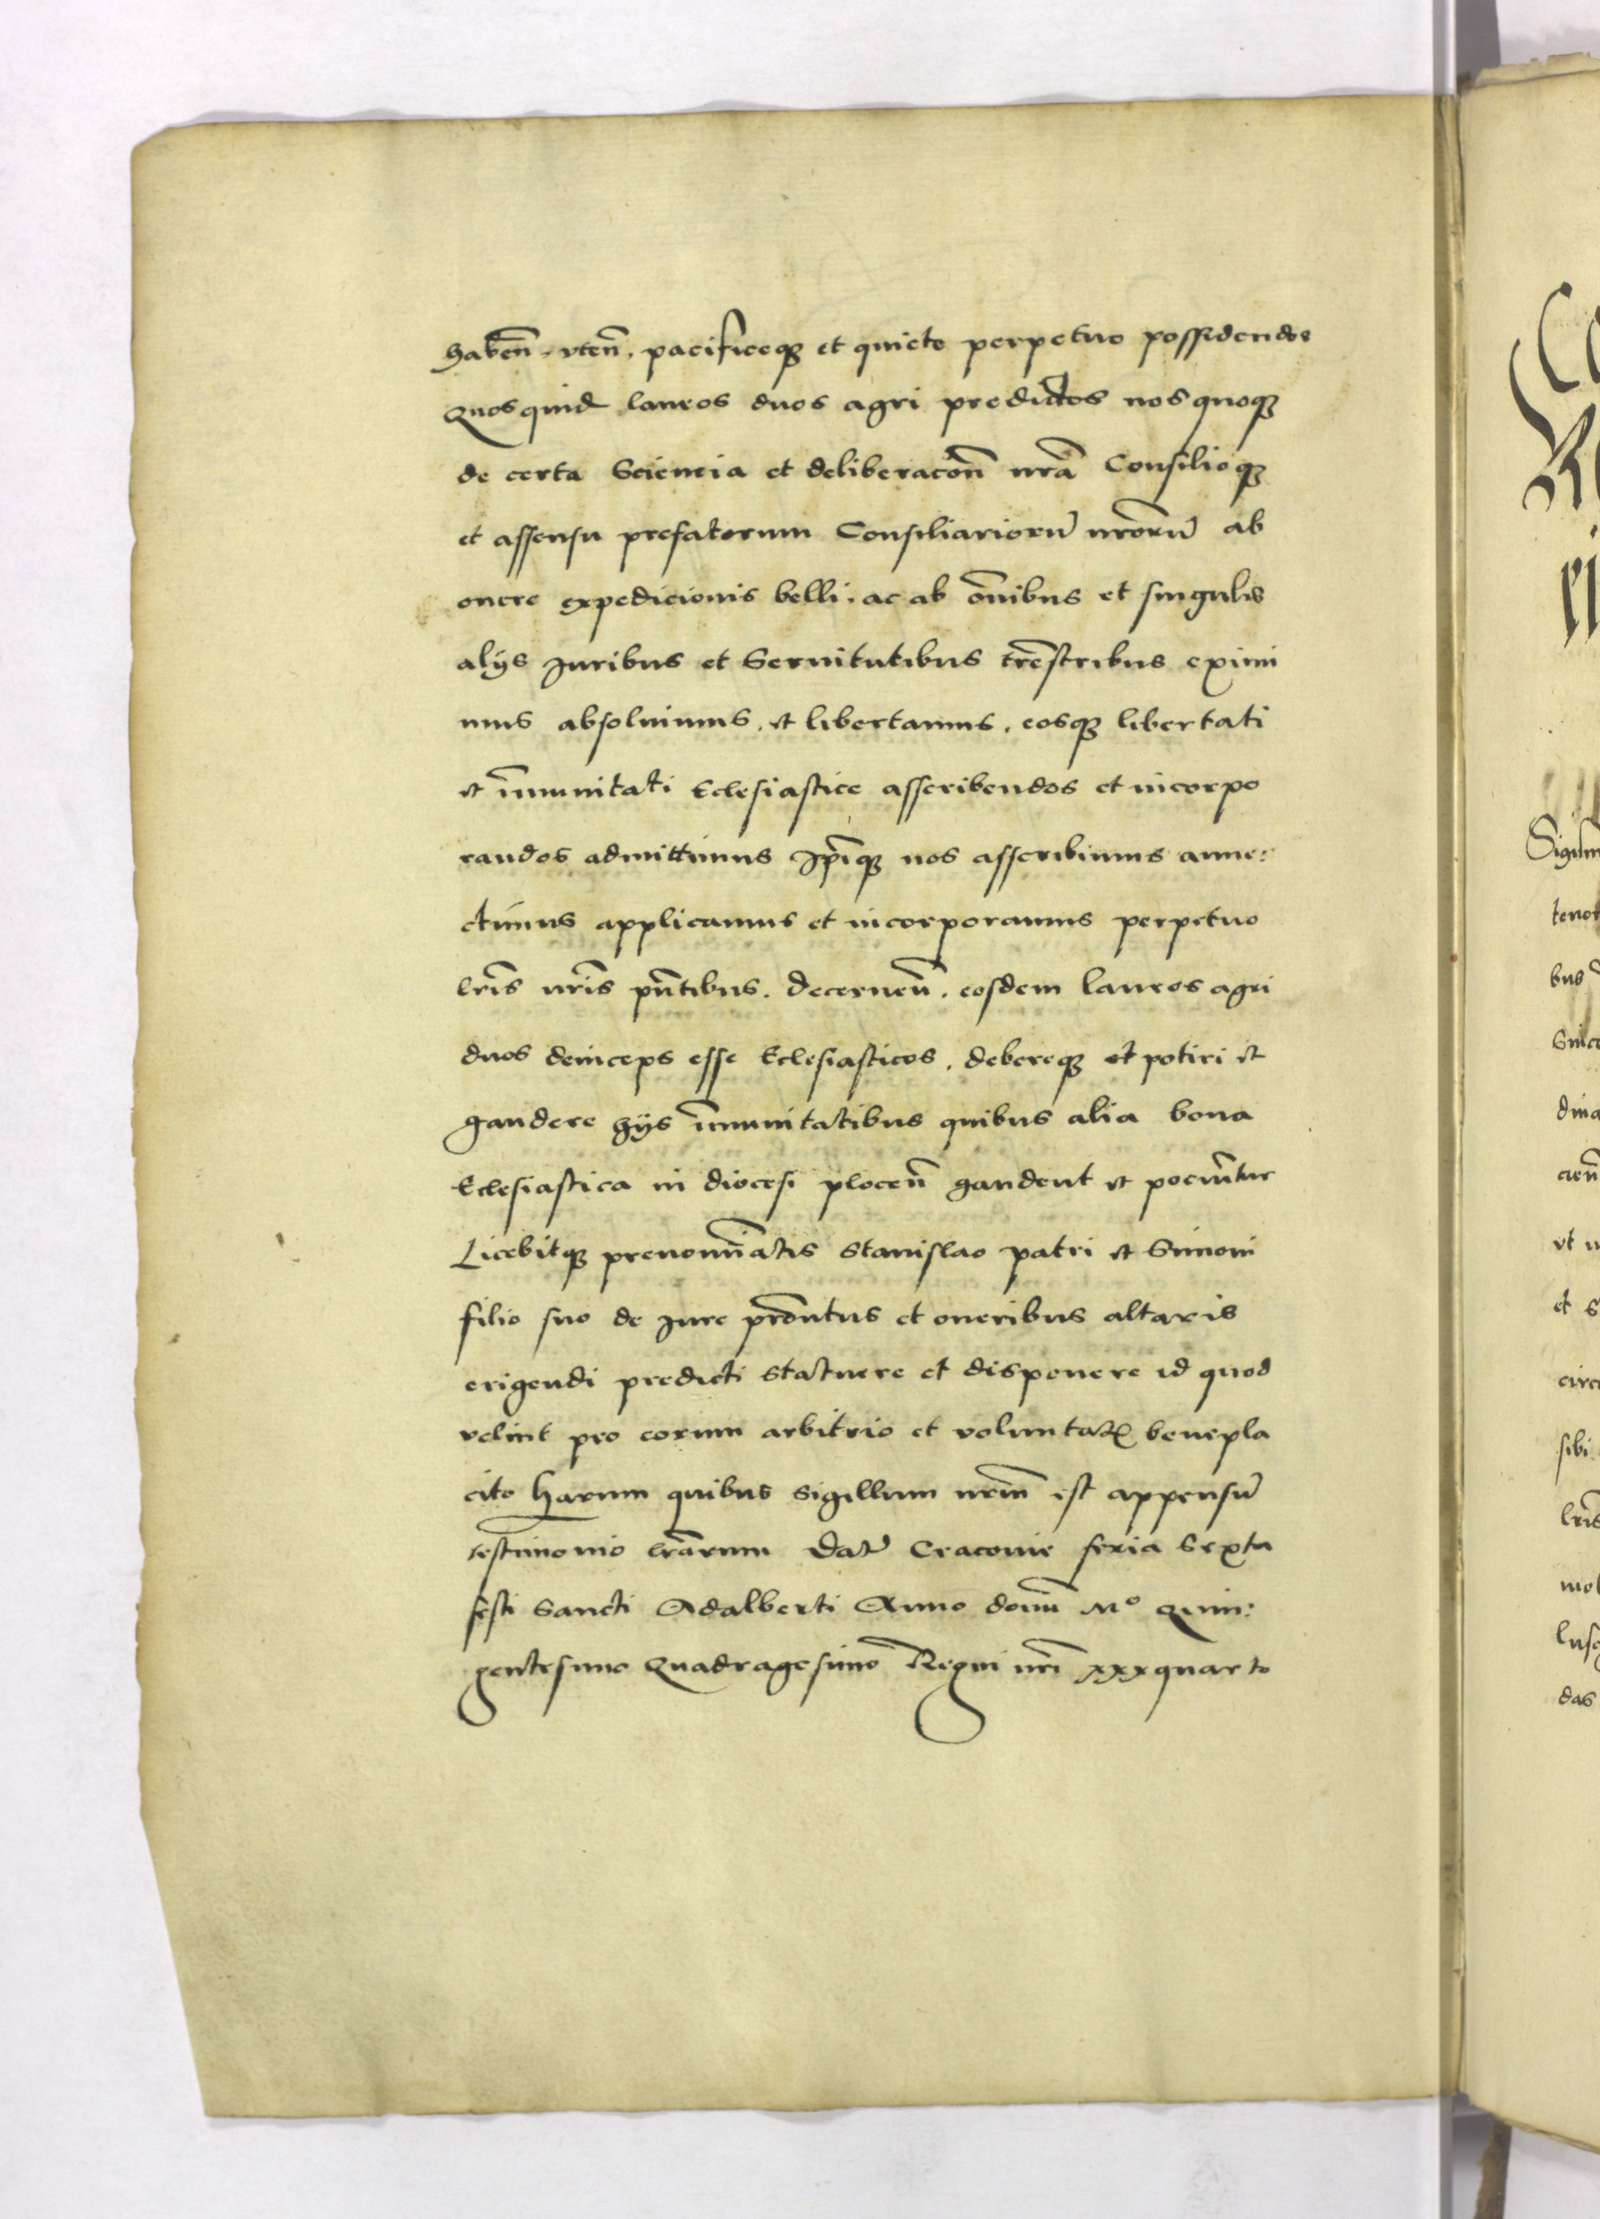 habeñ. vteñ. pacificeqȝ et quiete perpetuo possidendos
Quosquid laneos duos agri predictos nos quoqȝ
de certa Sciencia et deliberacoñ nrā Consilioqȝ
et assensu prefatorum Consiliariorū nrorū ab
onere expedicionis belli. ac ab oībus et singulis
alijs Juribus et Seruitutibus trēstribus eximi
mus absoluimus. et libertamus. eosqȝ libertati
et īmunitati Eclesiastice asscribendos et incorpo
randos admittimus Ipīqȝ nos asscribimus anne:
ctimus applicamus et incorporamus perpetuo
lrīs nrīs pñtibus. decerneñ. eosdem laneos agri
duos deinceps esse Eclesiasticos. debereqȝ et potiri et
gaudere hijs īmunitatibus quibus alia bona
Eclesiastica in diocesi ploceñ gaudent et pociūtur
Licebitqȝ prenomīatis Stanislao patri et Simoni
filio suo de Jure prōntus et oneribus altaris
erigendi predicti statuere et disponere id quod
velint pro eorum arbitrio et voluntatꝭ benepla
cito Harum quibus sigillum nrm̄ est appensū
testimonio lrārum Dat̄ Cracouie feria Sexta
festi Sancti Adalberti Anno domī Mº Quin:
gentesimo Quadragesimo Regni nrī xxxquarto
Sigism
bus
et s
sibi
lrīs
das